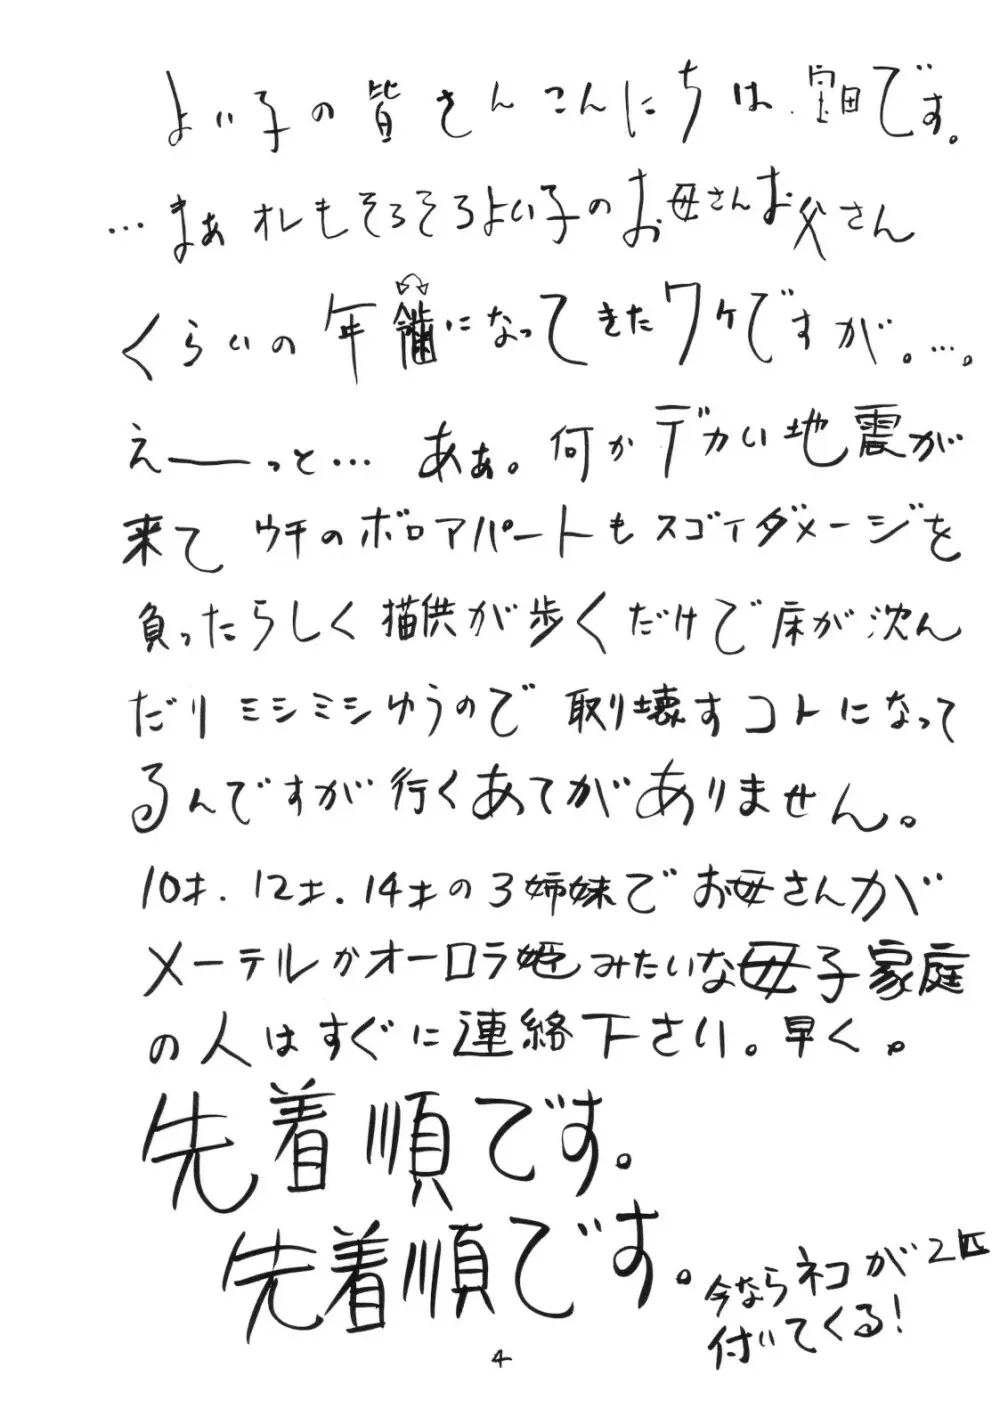 よい子の皆さんこんにちは、室田です。
…まぁオレもそろそろよい子のお母さんお父さん
くらいの年齢になってきたワケですが。…。
えーーっと… あぁ。何かデカい地震が
来て ウチのボロアパートもスゴイダメージを
負ったらしく猫供が歩くだけで床が沈ん
だりミシミシゆうので取り壊すコトになって
るんですが行くあてがありません。
10才.12才.14才の3姉妹でお母さんが
メーテルかオーロラ姫みたいな母子家庭
の人はすぐに連絡下さい。早く。
先着順です。
先着順です。
今ならネコが2匹
付いてくる!
4